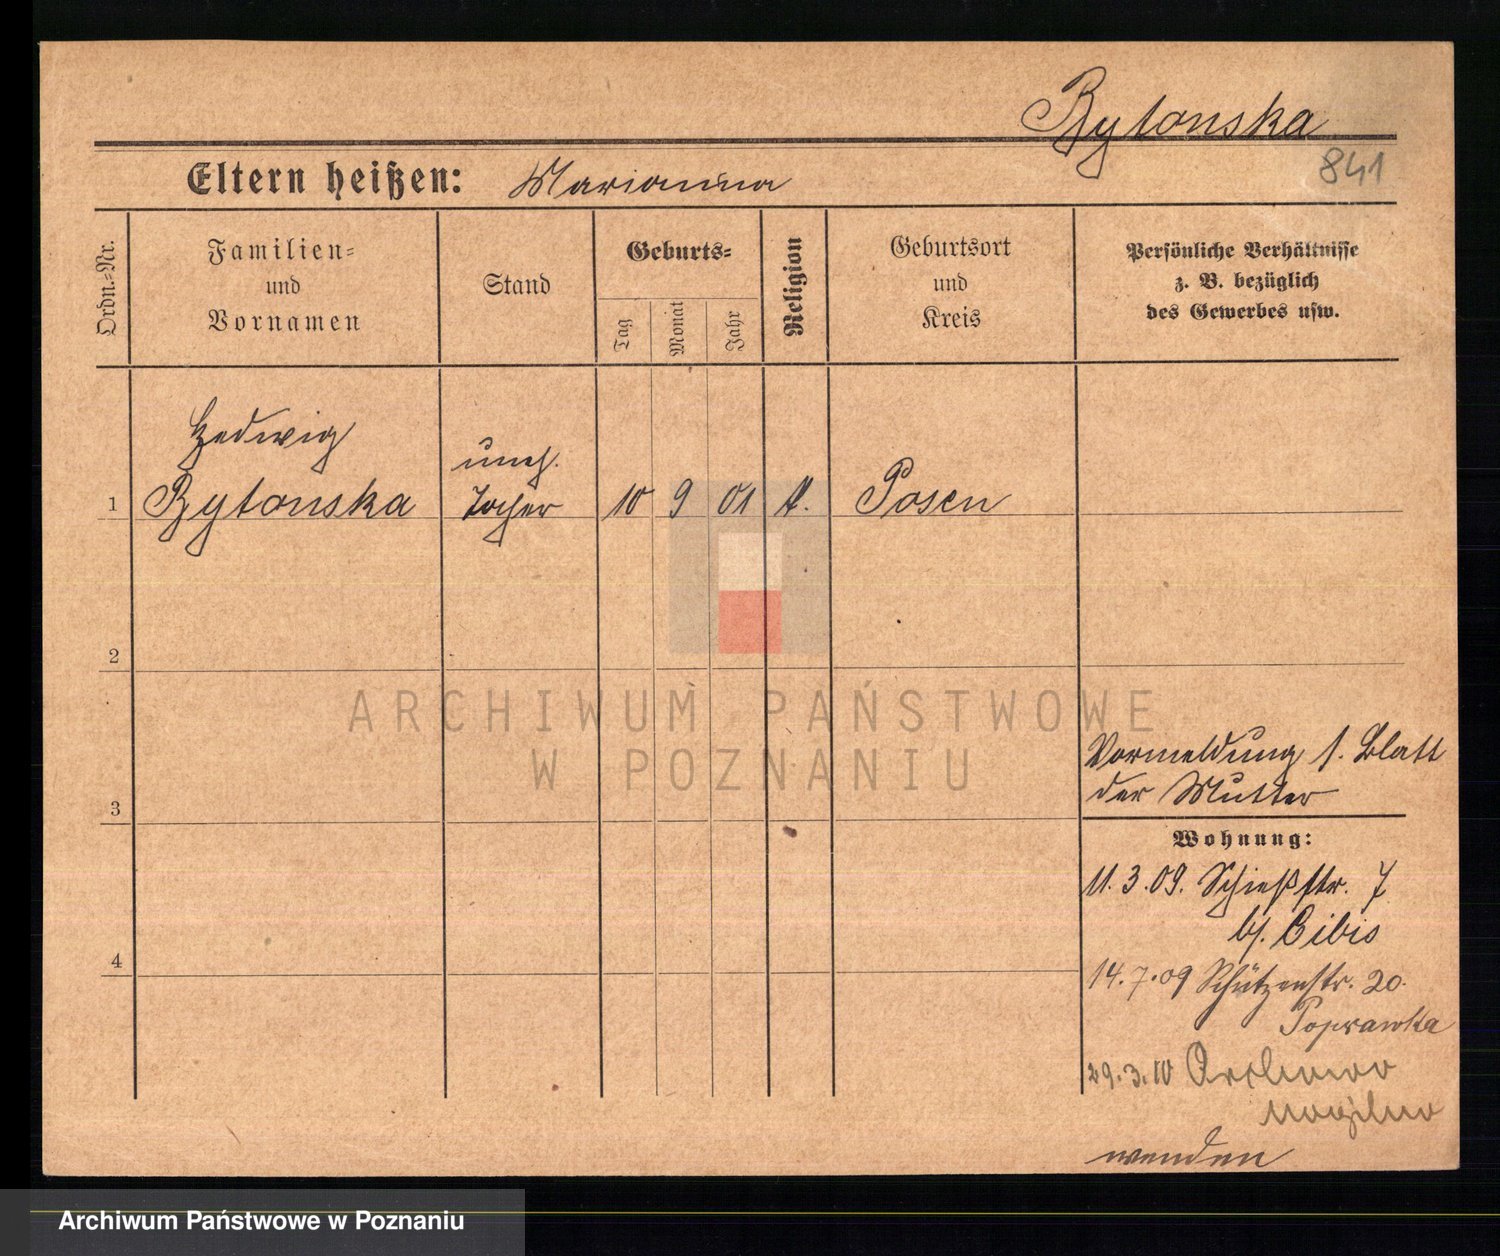 Rytonska
841
Eltern heißen: Marianna
Ordn.=Nr.
Familien=
und
Vornamen
Stand
Geburts=
Tag
Monat
Jahr
Religion
Geburtsort
und
Kreis
Persönliche Verhältnisse
z. B. bezüglich
des Gewerbes usw.
Hedwig
uneh.
1 Rytonska Tochter 10 9 01 k. Posen
2
ARCHIWUM PAŃSTWOWE
W POZNANIU
Vormeldung s. Blatt
der Mutter
3
Wohnung:
11.3.09. Schießstr. 7
b/. Bibis
4
14.7.09 Schützenstr. 20.
Poprawka
29.3.10
Mogilno
wenden
Archiwum Państwowe w Poznaniu